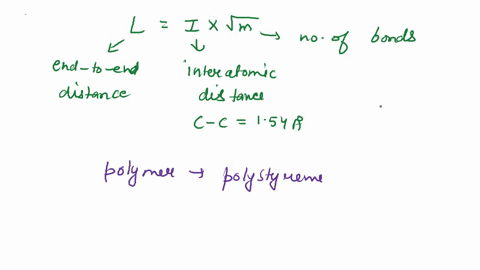 L = I × √m → no. of bonds
end-to-end distance
interatomic distance
C-C = 1.54 Å
polymer → polystyreme